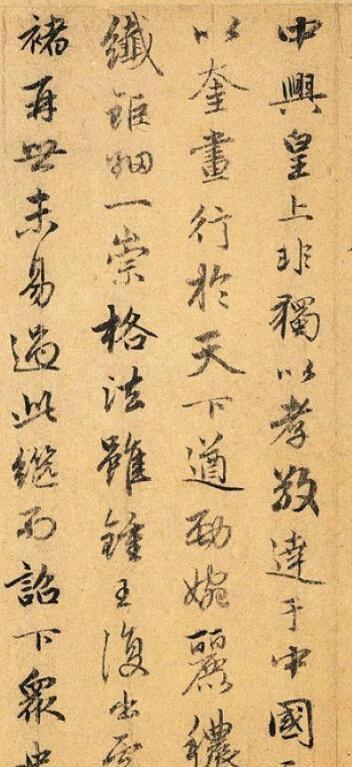 中興皇上非獨以孝敬達于中國
以奎畫行於天下遒勁婉麗穠
纖鉅細一崇格法雖鍾王復出
褚再世未易過此繼而詔下衆